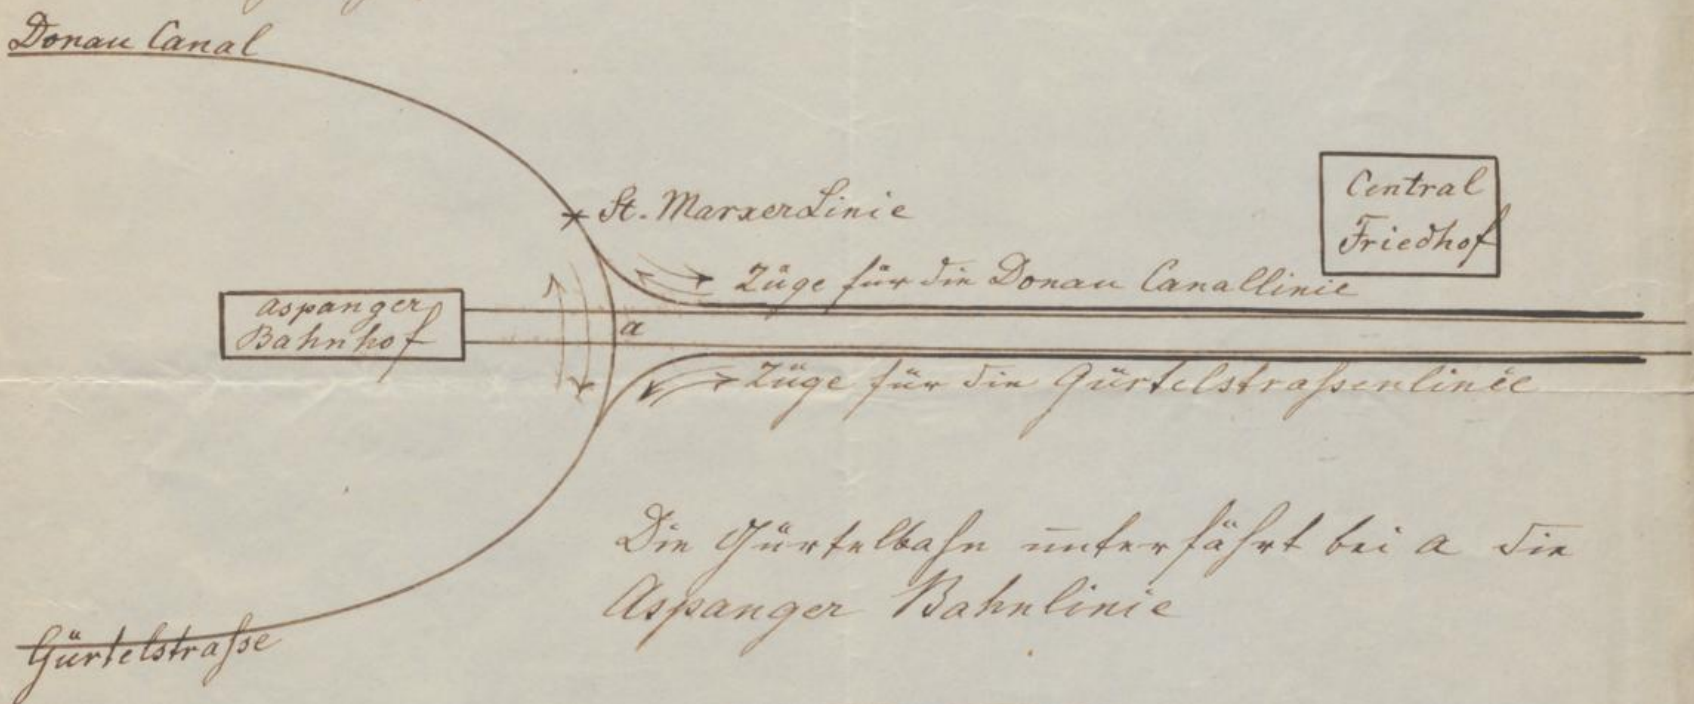 Donau Canal
St. Marxer Linie
Central
Friedhof
Züge für die Donau Canallinie
Aspanger
Bahnhof
a
Züge für die Gürtelstraßenlinie
Die Gürtelbahn unterfährt bei a die
Aspanger Bahnlinie
Gürtelstraße